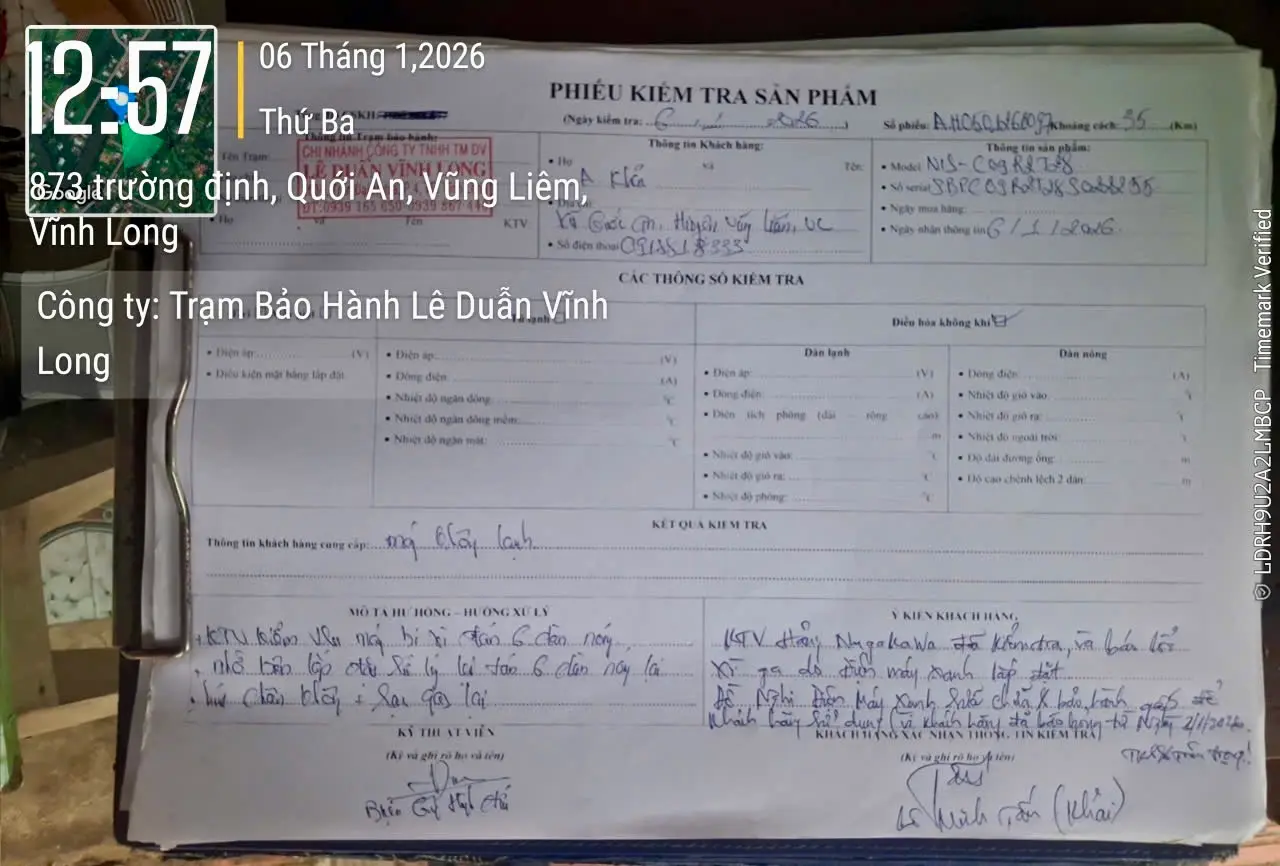 12:57
06 Tháng 1,2026
Thứ Ba
873 trường định, Quới An, Vũng Liêm,
Vĩnh Long
Công ty: Trạm Bảo Hành Lê Duẫn Vĩnh
Long
Google
© LDRH9U2A2LMBCP Timemark Verified
PHIẾU KIỂM TRA SẢN PHẨM
(Ngày kiểm tra: 6 / 1 / 2026) Số phiếu: Khoảng cách: 35 (Km)
Thông tin Trạm bảo hành:
Tên Trạm:
CHI NHÁNH CÔNG TY TNHH TM DV
LÊ DUẨN VĨNH LONG
Họ và Tên KTV
Thông tin Khách hàng:
Họ và Tên:
Số điện thoại
Thông tin sản phẩm:
Model NIS-C09R2T28
Số serial
Ngày mua hàng:
Ngày nhận thông tin 6/1/2026
CÁC THÔNG SỐ KIỂM TRA
Điều hòa không khí
Điện áp: (V)
Điều kiện mặt bằng lắp đặt
Điện áp: (V)
Dòng điện: (A)
Nhiệt độ ngăn đông: °C
Nhiệt độ ngăn đông mềm: °C
Nhiệt độ ngăn mát: °C
Dàn lạnh
Điện áp: (V)
Dòng điện: (A)
Diện tích phòng (dài rộng cao)
m
Nhiệt độ gió vào: °C
Nhiệt độ gió ra: °C
Nhiệt độ phòng: °C
Dàn nóng
Dòng điện: (A)
Nhiệt độ gió vào: °C
Nhiệt độ gió ra: °C
Nhiệt độ ngoài trời: °C
Độ dài đường ống: m
Độ cao chênh lệch 2 dàn: m
KẾT QUẢ KIỂM TRA
Thông tin khách hàng cung cấp: máy không lạnh
MÔ TẢ HƯ HỎNG – HƯỚNG XỬ LÝ
KTV kiểm tra máy bị xì tán 6 dàn nóng
nhờ bên lắp đặt xử lý lại tán 6 dàn nóng lại
hút chân không + sạc gas lại
KỸ THUẬT VIÊN
(Ký và ghi rõ họ và tên)
Ý KIẾN KHÁCH HÀNG
KTV Hãng Nagakawa đã kiểm tra, và báo lỗi
xì ga do điện máy xanh lắp đặt
Đề Nghị Điện Máy Xanh sửa chữa & bảo hành gấp để
khách hàng sử dụng (vì khách hàng đã báo hỏng từ Ngày 2/1/2026
KHÁCH HÀNG XÁC NHẬN THÔNG TIN KIỂM TRA
(Ký và ghi rõ họ và tên)
Trân trọng!
Lê Minh Tấn (Khải)